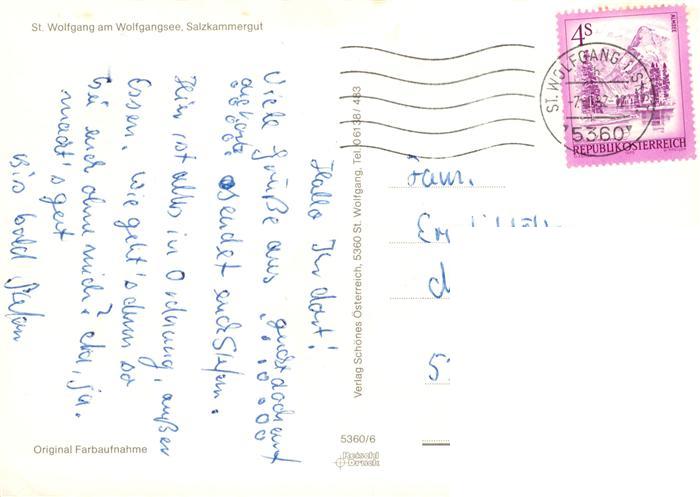 St. Wolfgang am Wolfgangsee, Salzkammergut
Hallo Ihr dort!
Viele Grüße aus
sendet euch Stefan.
Hier ist alles in Ordnung, außer
Essen. Wie geht's denn so
bei euch ohne mich? Na, ja.
macht's gut
Bis bald Stefan
Original Farbaufnahme
Verlag Schönes Österreich, 5360 St. Wolfgang, Tel. 06138/483
5360/6
Reischl
Druck
4S
ALMSEE
REPUBLIK ÖSTERREICH
ST. WOLFGANG
5360
Fam.
5